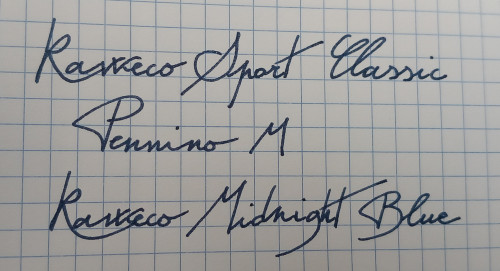 Kaweco Sport Classic
Pennino M
Kaweco Midnight Blue